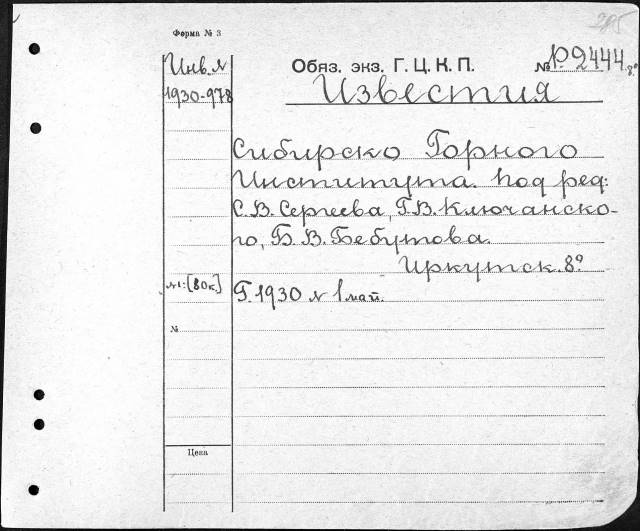 Форма № 3
Инв. №
1930-978
Обяз. экз. Г. Ц. К. П.
№ Р 2444. 8º
Известия
Сибирско Горного
Института. Под ред:
С. В. Сергеева, Г. В. Ключанско-
го, Б. В. Бебутова.
Иркутск. 8º
№ 1: [80 к.]
Г. 1930 № 1 май.
№
Цена